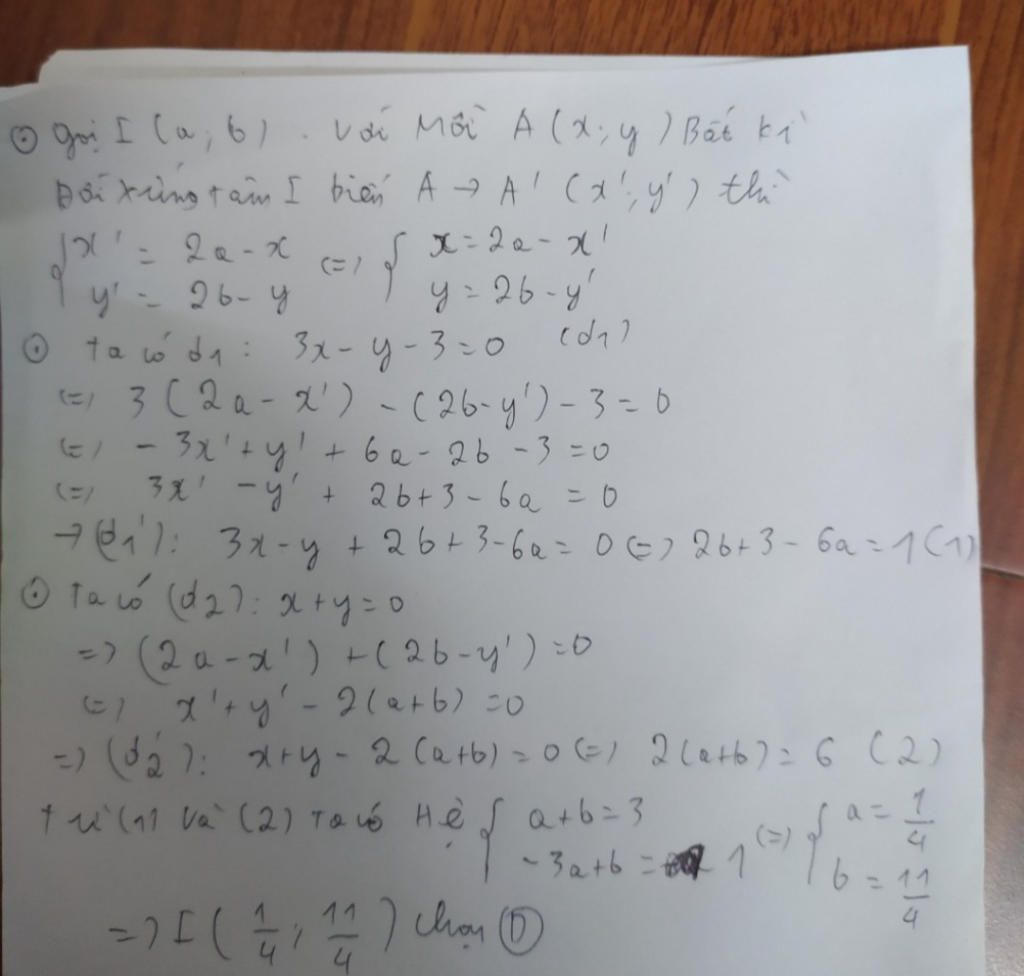 ⊙ gọi I (a; b). Với Mỗi A (x; y) Bất kì
Đối xứng tâm I biến A → A' (x'; y') thì
{ x' = 2a - x (=) { x = 2a - x'
{ y' = 2b - y { y = 2b - y'
⊙ Ta có d1 : 3x - y - 3 = 0 (d1)
(=) 3 (2a - x') - (2b - y') - 3 = 0
(=) - 3x' + y' + 6a - 2b - 3 = 0
(=) 3x' - y' + 2b + 3 - 6a = 0
→ (d1'): 3x - y + 2b + 3 - 6a = 0 (=) 2b + 3 - 6a = 1 (1)
⊙ Ta có (d2): x + y = 0
=> (2a - x') + (2b - y') = 0
(=) x' + y' - 2(a+b) = 0
=> (d2'): x + y - 2 (a+b) = 0 (=) 2(a+b) = 6 (2)
từ (1) và (2) Ta có Hệ { a + b = 3 (=) { a = 1/4
{ -3a + b = 1 { b = 11/4
=> I ( 1/4 ; 11/4 ) chọn Ⓓ